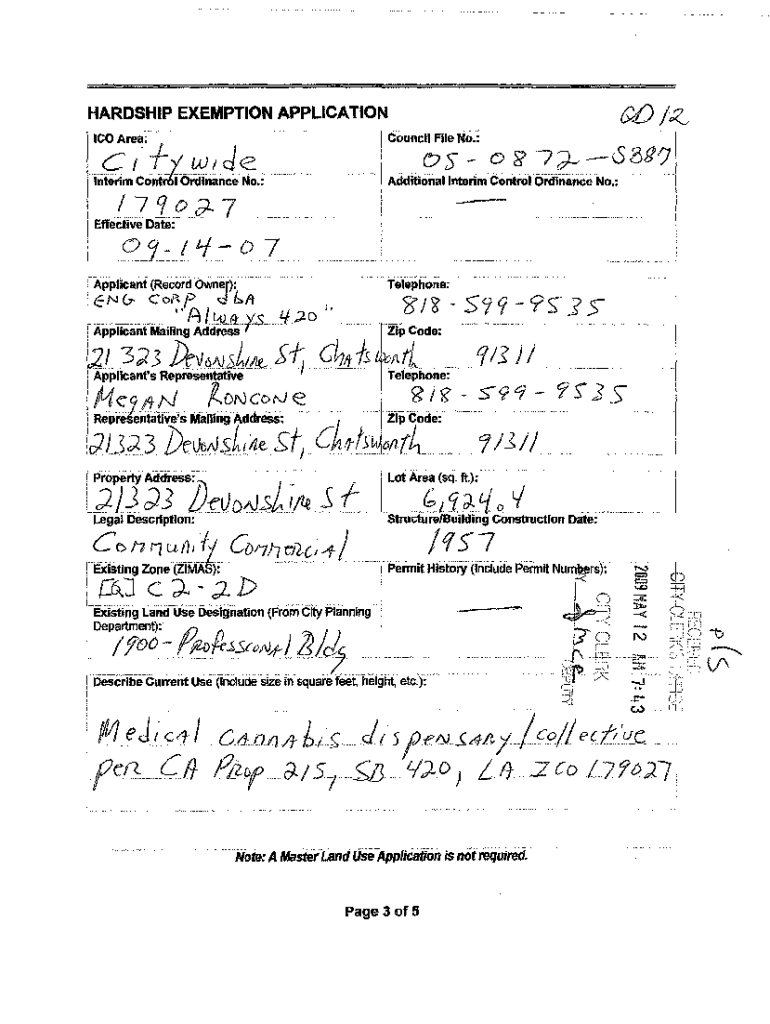 HARDSHIP EXEMPTION APPLICATION
CD 12
ICO Area:
Citywide
Council File No.:
05-0872-S387
Interim Control Ordinance No.:
179027
Additional Interim Control Ordinance No.:
—
Effective Date:
09-14-07
Applicant (Record Owner):
ENG CORP dbA
"Always 420"
Telephone:
818-599-9535
Applicant Mailing Address
21323 Devonshire St, Chatsworth
Zip Code:
91311
Applicant's Representative
Megan Roncone
Telephone:
818-599-9535
Representative's Mailing Address:
21323 Devonshire St, Chatsworth
Zip Code:
91311
Property Address:
21323 Devonshire St
Lot Area (sq. ft.):
6,924.4
Legal Description:
Community Commercial
Structure/Building Construction Date:
1957
Existing Zone (ZIMAS):
[Q] C2-2D
Permit History (Include Permit Numbers):
—
Existing Land Use Designation (From City Planning
Department):
1900-Professional Bldg
BY
CITY CLERK
DEPUTY
2009 MAY 12 AM 7:43
RECEIVED
CITY CLERK'S OFFICE
Describe Current Use (Include size in square feet, height, etc.):
Medical Cannabis dispensary/collective
per CA Prop 215, SB 420, LA ICO 179027
Note: A Master Land Use Application is not required.
Page 3 of 5